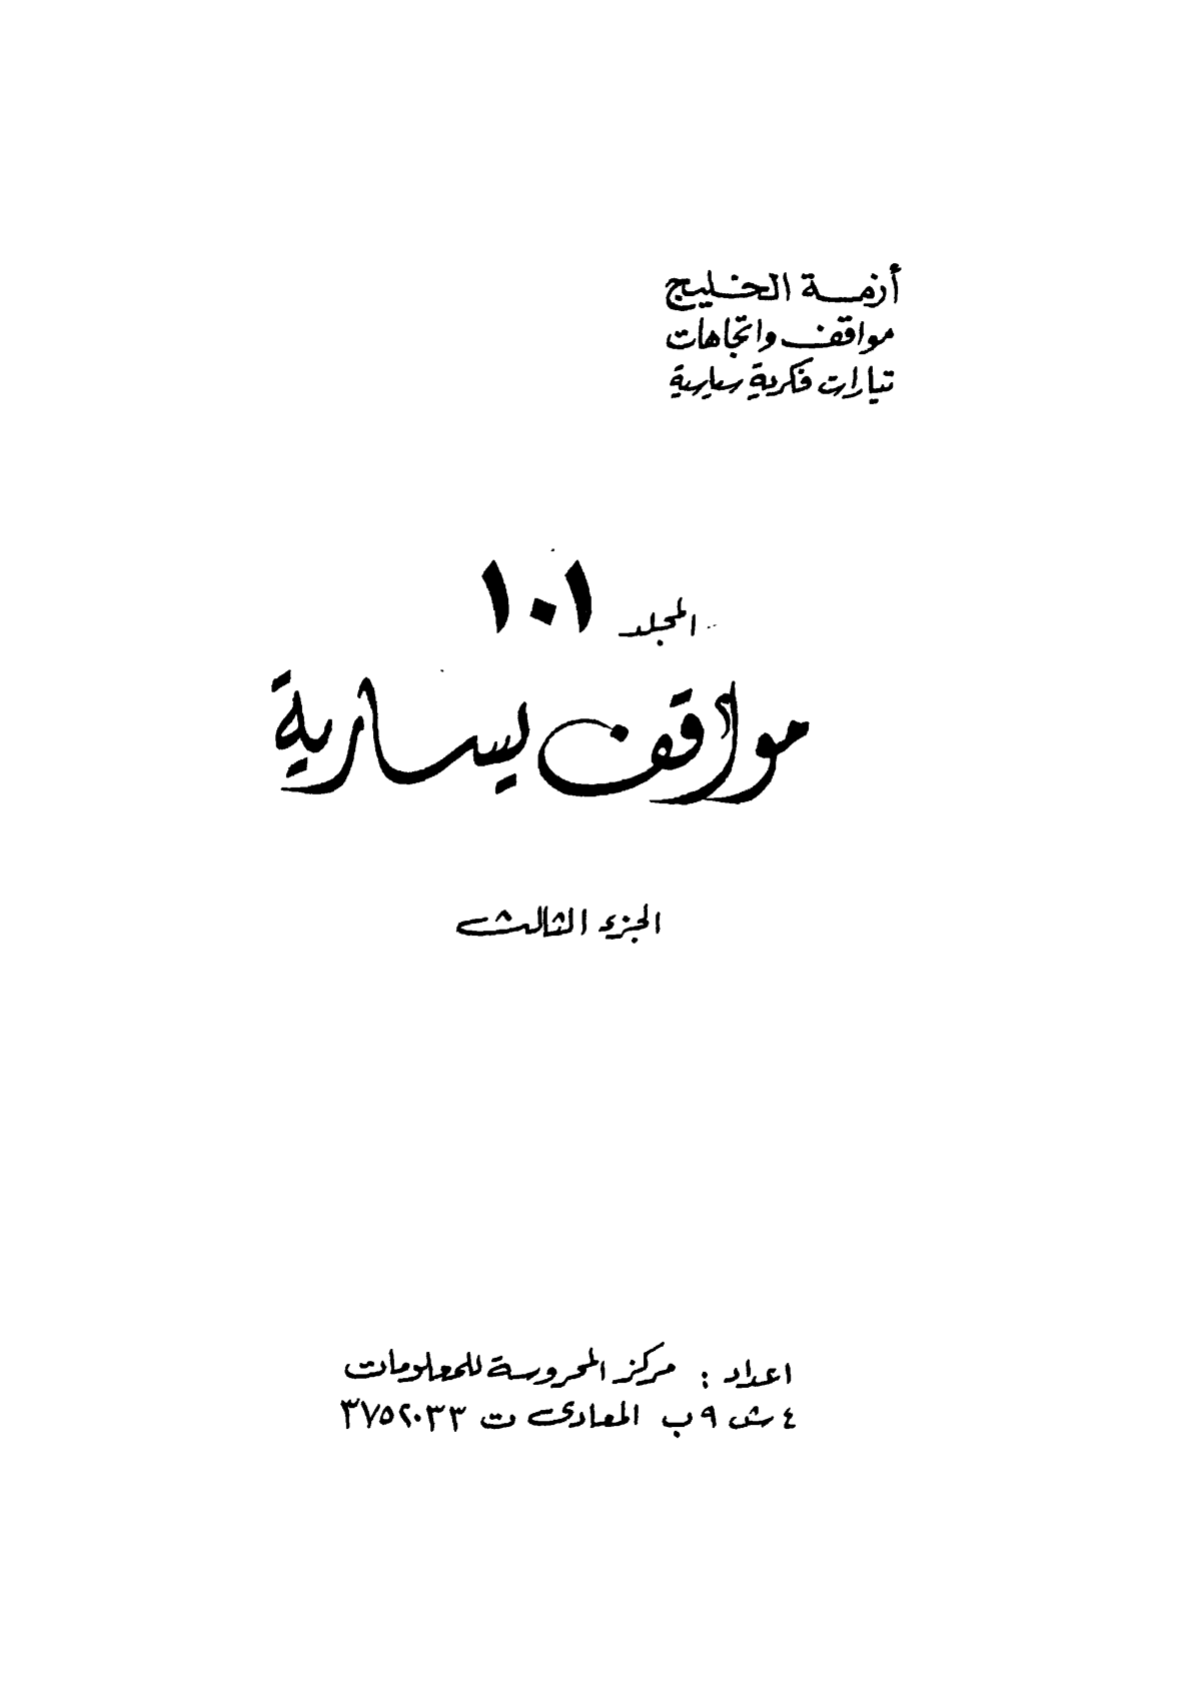 أزمة الخليج
مواقف واتجاهات
تيارات فكرية سياسية
المجلد ١٠١
مواقف يسارية
الجزء الثالث
اعداد : مركز المحروسة للمعلومات
٤ ش ٩ ب المعادى ت ٣٧٥٢٠٣٣